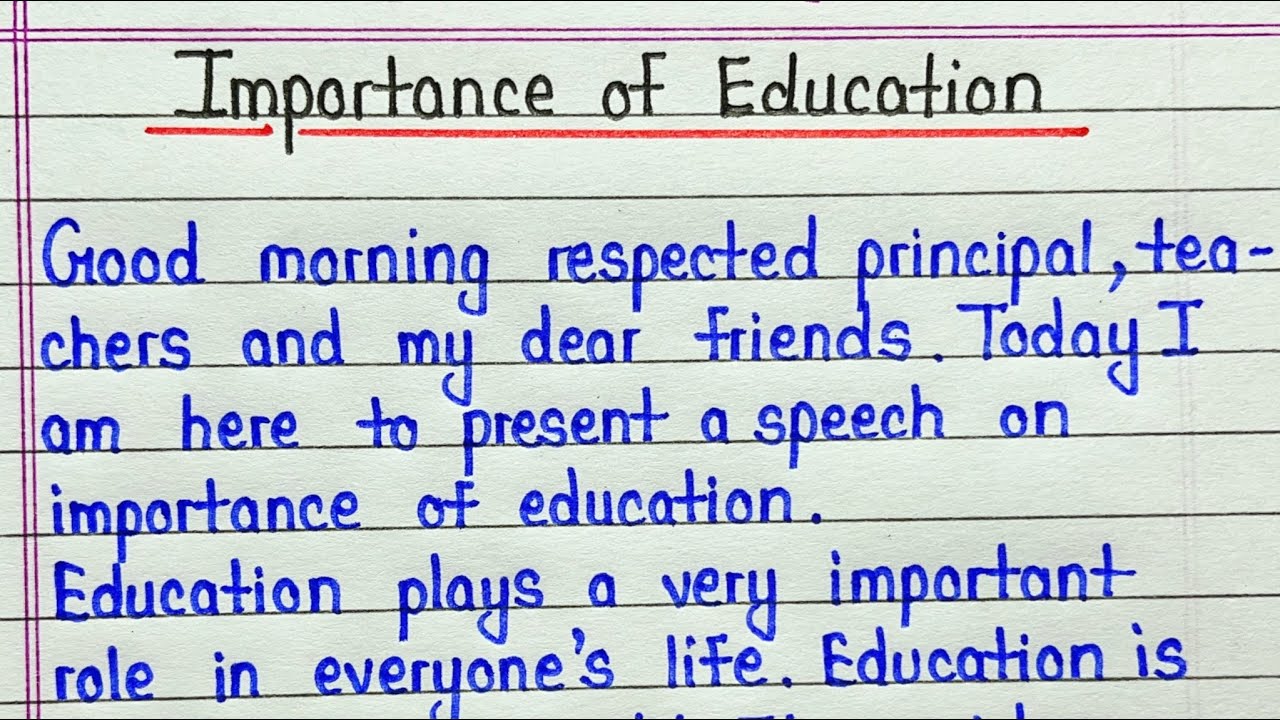 Importance of Education
Good morning respected principal, tea-
chers and my dear friends. Today I
am here to present a speech on
importance of education.
Education plays a very important
role in everyone's life. Education is